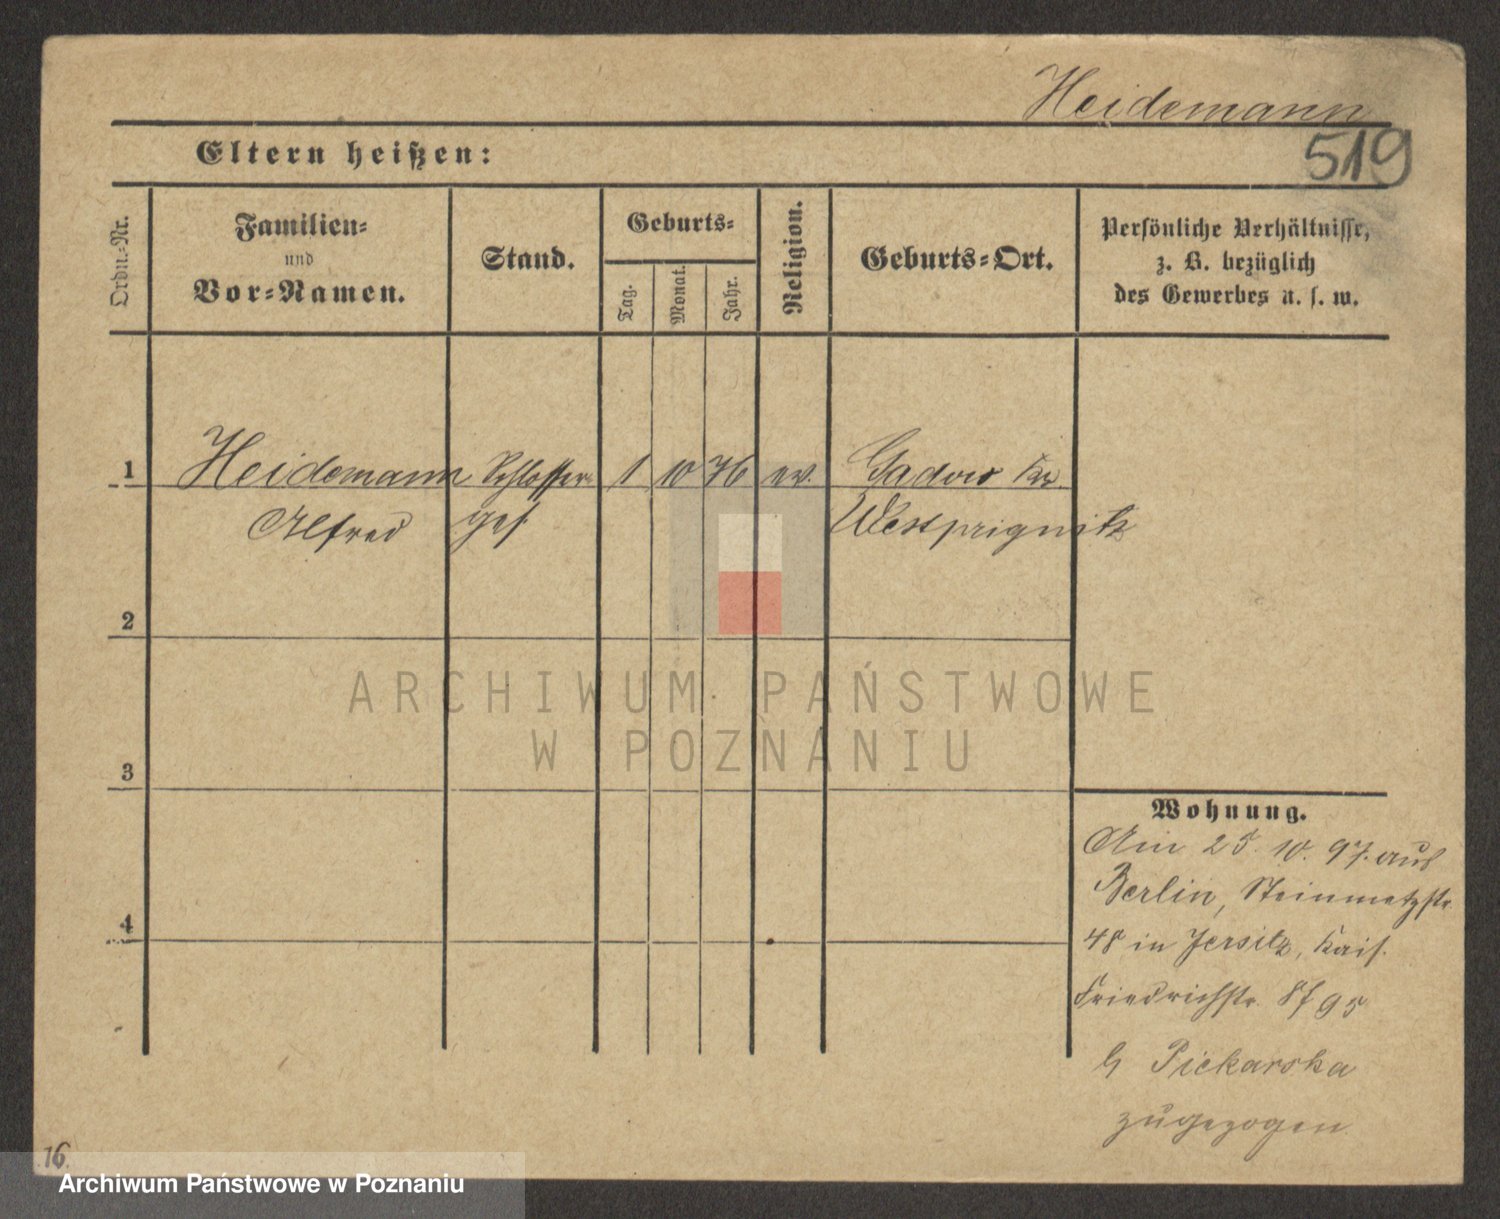 Heidemann
519
Eltern heißen:
Ordn.-Nr.
Familien-
und
Vor-Namen.
Stand.
Geburts-
Tag.
Monat.
Jahr.
Religion.
Geburts-Ort.
Persönliche Verhältnisse,
z. B. bezüglich
des Gewerbes u. s. w.
1 Heidemann Schlosser 1 10 76 ev. Gadow Kr.
Alfred ges. Westprignitz
2
3
4
Wohnung.
Am 25. 10. 97. aus
Berlin, Steinmetzstr.
48 in Jersitz, Kais.
Friedrichstr.
b Piekarska
zugezogen
16.
ARCHIWUM PAŃSTWOWE
W POZNANIU
Archiwum Państwowe w Poznaniu